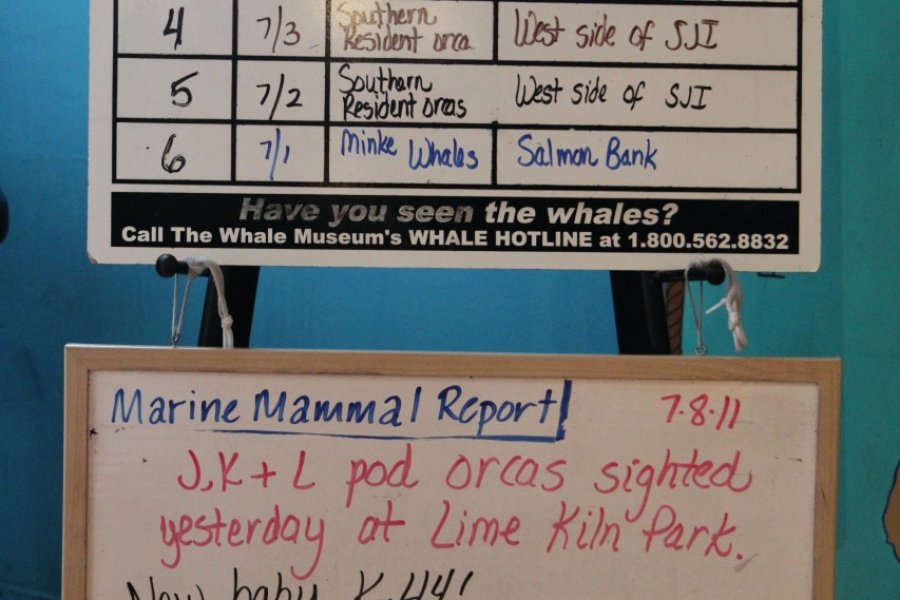 4 7/3 Southern Resident orca West side of SJI
5 7/2 Southern Resident orcas West side of SJI
6 7/1 Minke Whales Salmon Bank
Have you seen the whales?
Call The Whale Museum's WHALE HOTLINE at 1.800.562.8832
Marine Mammal Report 7.8.11
J, K + L pod orcas sighted
yesterday at Lime Kiln Park.
New baby K-44!